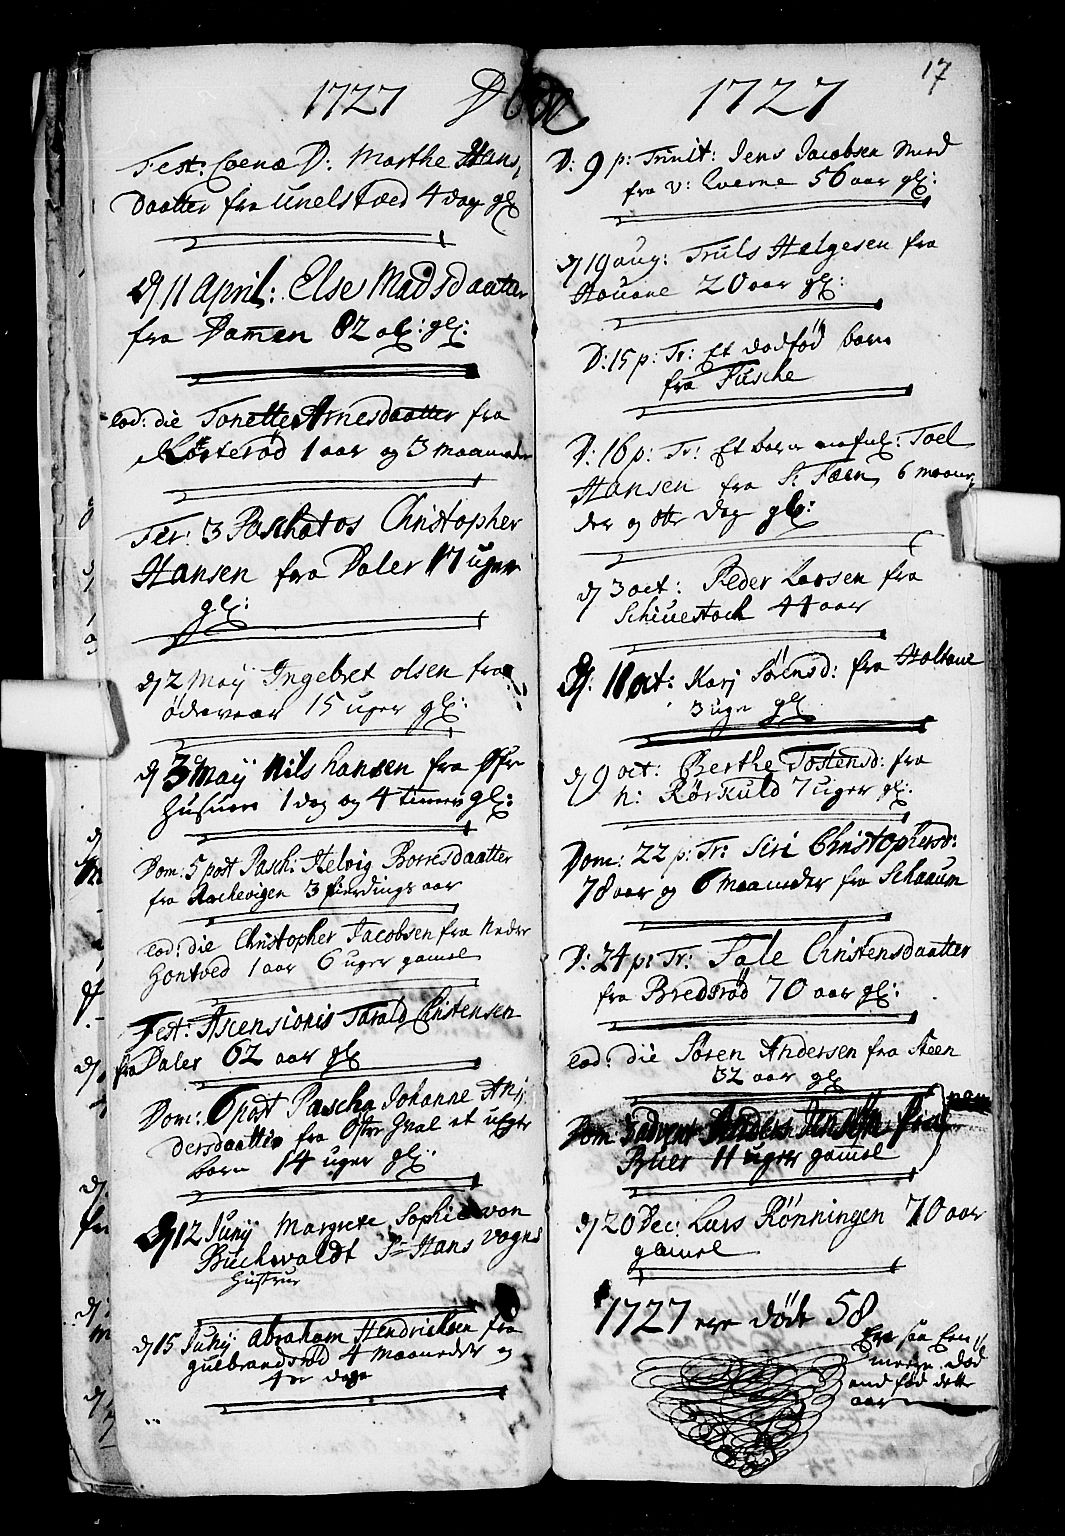 1727 Døde 1727
17
Fest: Coenæ D: Marthe Hans,
Daatter fra Unelstved 4 dage gl
d 11 April: Else Madsdaatter
fra Damen 82 gl:
eod: die Tonette Arnesdaatter fra
Korterød 1 aar og 3 maaneder
Fer: 3 Paschatos Christopher
Hansen fra Daler 17 uger
gl:
d 2 Maij Ingebret Olsen fra
Ødevaar 15 uger gl:
d 3 Maij Nils Hansen fra
Husuen 1 dag og 4 timer gl:
Dom: 5 post Pasch: Helvig Borresdaatter
fra Rachevigen 3 fierdings aar
eod: die Christopher Jacobsen fra Neder
Hontved 1 aar 6 uger gamel
Fest: Ascensionis Tarald Christensen
fra Daler 62 aar gl
Dom: 6 post Pascha Johanne An,
dersdaatter fra Østre Hual et uegte
barn 14 uger gl:
d 12 Junij Margrete Sophia von
Buchwaldt Sr Hans Vogns
Hustrue
d 15 Junij Abraham Hendrichsen fra
Gulbrandsrød 4 maaneder og
dage
D: 9 p: Trinit: Jens Jacobsen
fra v: Qverne 56 aar gl:
d 19 aug: Truls Halgesen fra
Houane 20 aar gl:
D: 15 p: Tr: Et dødfød barn
fra Fusche
D: 16 p: Tr: Et barn Joel
Hansen fra 6 maane,
der og otte dag gl:
d 3 oct: Peder Larsen fra
Schiuestoch 44 aar
d: 11 oct: Karj Sørensd: fra Holtane
3 uge gl
d 9 oct: Berthe Tostensd: fra
n: Rørkuld 7 uger gl:
Dom: 22 p: Tr: Siri Christophersd:
78 aar og 6 maaneder fra Schaaum
D: 24 p: Tr: Sale Christensdaatter
fra Bredsrød 70 aar gl:
eod: die Søren Andersen fra Steen
32 aar gl
Dom 3 advent Anders Jensen fra
Buer 11 uger gamel
d 20 Dec: Lars Rønningen 70 aar
gamel
1727 ere døde 58
Ere saa Een
meere død
end fød dette
aar